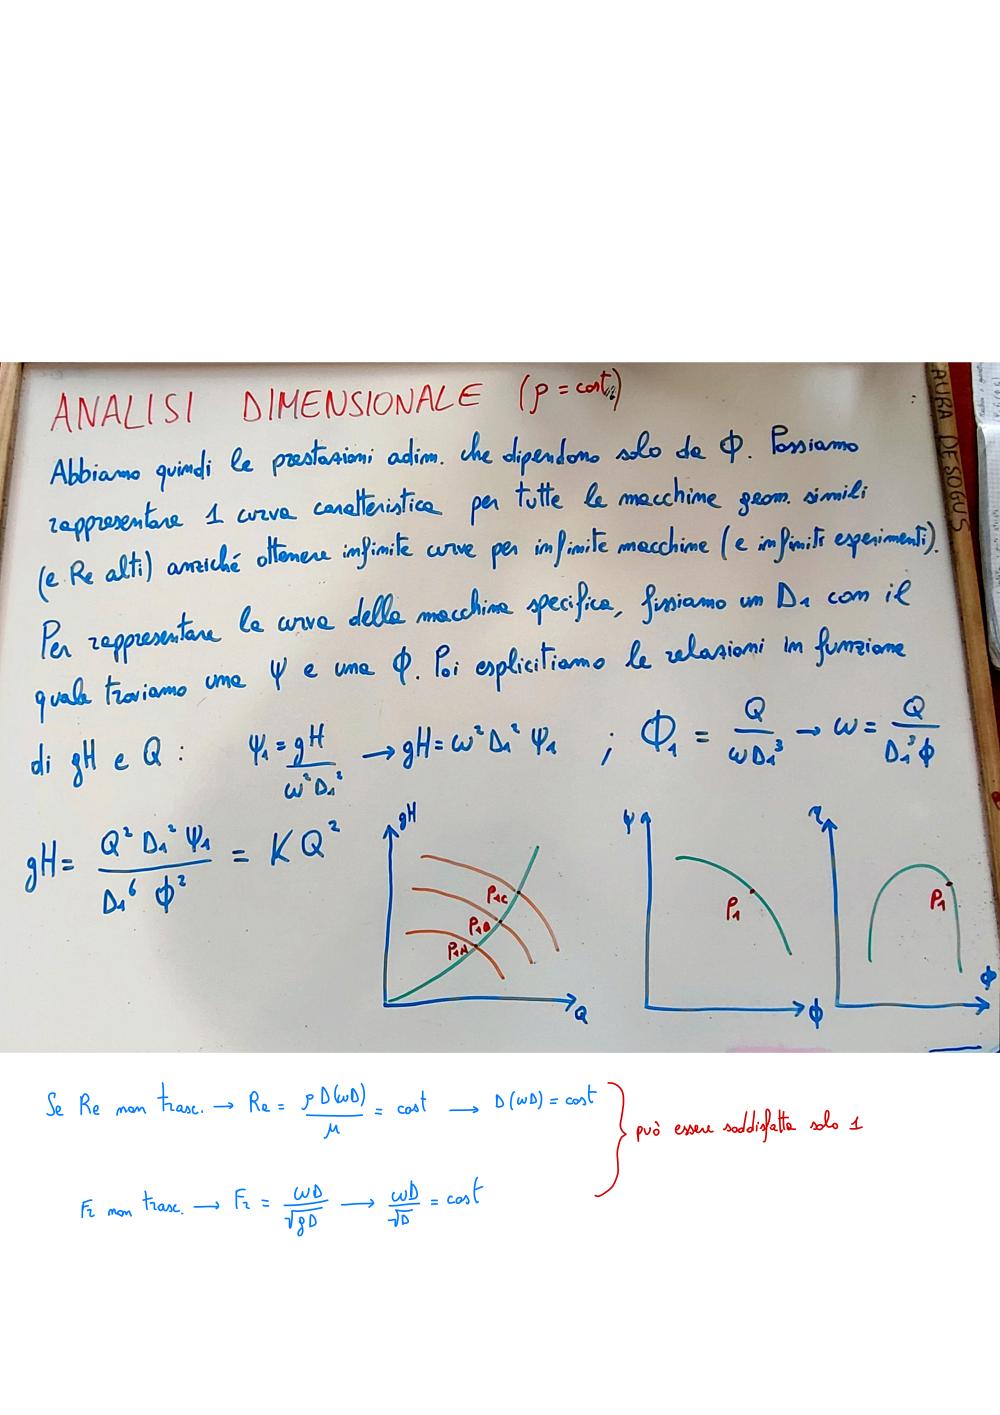 ANALISI DIMENSIONALE (ρ = cost.)
Abbiamo quindi le prestazioni adim. che dipendono solo da ϕ. Possiamo
rappresentare 1 curva caratteristica per tutte le macchine geom. simili
(e Re alti) anziché ottenere infinite curve per infinite macchine (e infiniti esperimenti).
Per rappresentare la curva della macchina specifica, fissiamo un D₁ con il
quale troviamo una ψ e una ϕ. Poi esplicitiamo le relazioni in funzione
di gH e Q : ψ₁ = gH / ω² D₁² → gH = ω² D₁² ψ₁ ; ϕ₁ = Q / ω D₁³ → ω = Q / D₁³ ϕ
gH = Q² D₁² ψ₁ / D₁⁶ ϕ² = K Q²
gH
P₁A
P₁B
P₁C
Q
ψ
P₁
ϕ
η
P₁
ϕ
LAURA DESOGUS
Se Re non trasc. → Re = ρ D(ωD) / μ = cost → D(ωD) = cost
può essere soddisfatta solo 1
Fr non trasc. → Fr = ωD / √gD → ωD / √D = cost